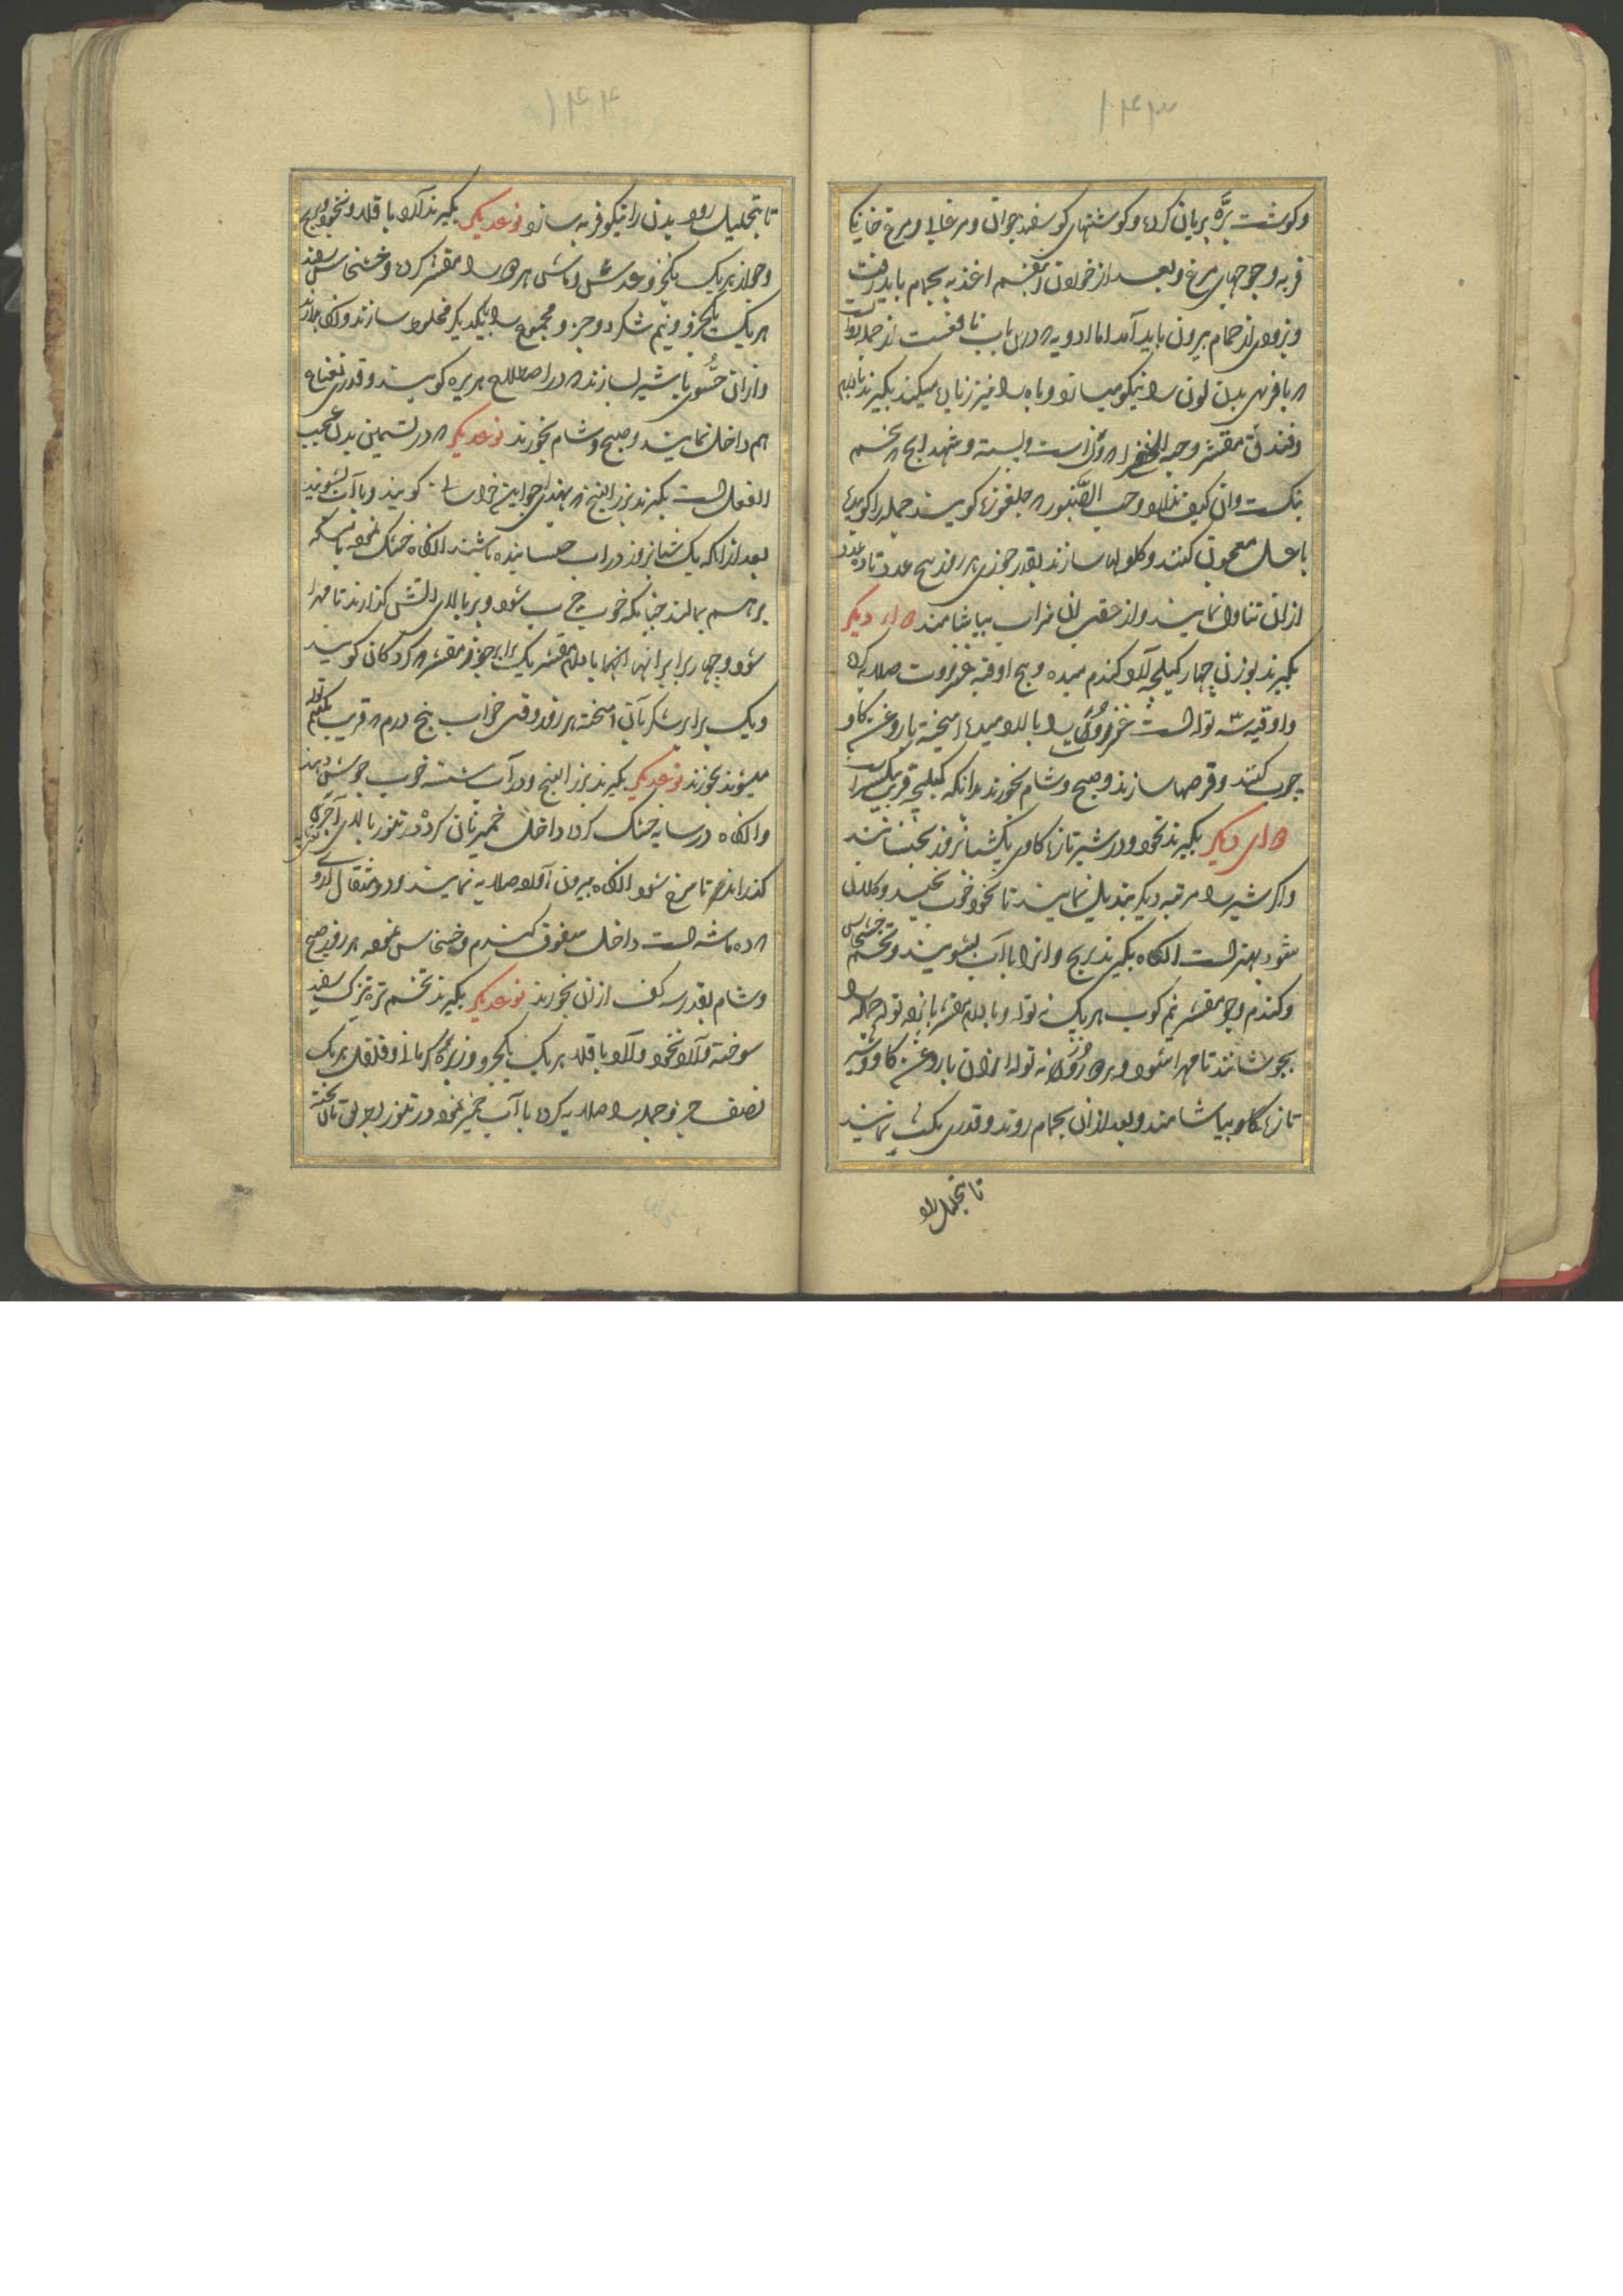 ۱۴۳
و گوشت برّه بریان کرده و گوشتهای گوسفند جوان و مرغابی و مرغ خانگی
فربه و جوجهای مرغ و بعد از خوردن اغذیه بحمام باید رفت
و بزودی از حمام بیرون باید آمد اما ادویه که درین باب نافعست از جمله دوائیست
که با فربهی بدن لون را نیکو میسازد و باه را نیز زیاده میکند بگیرند بادام
و فندق مقشر و حبة الخضرا که ون است و پسته و شهدانج که تخم
بنگست و ان کیف ندارد و حب الصنوبر که چلغوزه گویند جمله را کوبیده
با عسل معجون کنند و گلولها سازند بقدر جوزی هر روز پنج عدد تا ده عدد
ازان تناول نمایند و از عقب ان شراب بیاشامند دوای دیگر
بگیرند بوزن چهار کیلجه آرد گندم میده و پنج اوقیه عنزروت صلایه کرده
و اوقیه سه توله است عنزروت را با آرد میده امیخته با روغن گاو
چرب کنند و قرصها سازند و صبح و شام بخورند بدانکه کیلجه قریب یکسیر است
دوای دیگر بگیرند نخود و در شیر تازه گاو یکشبانروز بخیسانند
و اگر شیر را مرتبه دیگر تبدیل نمایند تا نخود خوب بخیسد و کلان
شود بهتر است انگاه بگیرند برنج و انرا با آب بشویند و تخم خشخاش
و گندم و جو مقشر نیم کوب هر یک نه توله و بادام مقشر پانزده توله جمله را
بجوشانند تا مهرا شود و هر روز نه توله ازان با روغن گاو و شیر
تازه گاو بیاشامند و بعد ازان بحمام روند و قدری مکث نمایند
تا بتحلیل رود
۱۴۴
تا بتحلیل رود بدن را نیکو فربه سازد نوعدیگر بگیرند آرد باقلا و نخود و برنج
و جو از هر یک یکجزو عدس و ماش هر دو را مقشر کرده و خشخاش سفید
هر یک یکجزو و نیم شکر دو جزو مجموع را بیکدیگر مخلوط سازند و نگاه دارند
و ازان حسوی با شیر بسازند که در اصطلاح هریره گویند و قدری نعناع
هم داخل نمایند و صبح و شام بخورند نوعدیگر که در تسمین بدن عجیب
الفعل است بگیرند بزر البنج که بهندی اجواین خراسانی گویند و با آب بشویند
بعد ازانکه یک شبانروز در اب خیسانیده باشند انگاه خشک نموده با مسکه
برهم بمالند چنانکه خوب چرب شود و بر بالای اتش گذارند تا مهرا
شود و چهار برابر انها بادام مقشر یک برابر جوز مقشر که گردکان گویند
و یک برابر شکر بآن امیخته هر روز وقت خواب پنج درم که قریب یکنیم توله
میشود بخورند نوعدیگر بگیرند بزر البنج و در آب شسته خوب جوش دهند
و انگاه در سایه خشک کرده داخل خمیر نان کرده در تنور بالای آجری
گذارند تا سرخ شود انگاه بیرون آورده صلایه نمایند و دو مثقال ازو
که ده ماشه است داخل سفوف گندم و خشخاش نموده هر روز صبح
و شام بقدر سه کف ازان بخورند نوعدیگر بگیرند تخم تره تیزک سفید
سوخته و آرد نخود و آرد باقلا هر یک یکجزو و زیره کرمانی و فلفل هر یک
نصف جزو جمله را صلایه کرده با آب خمیر نموده در تنور بریان پخته